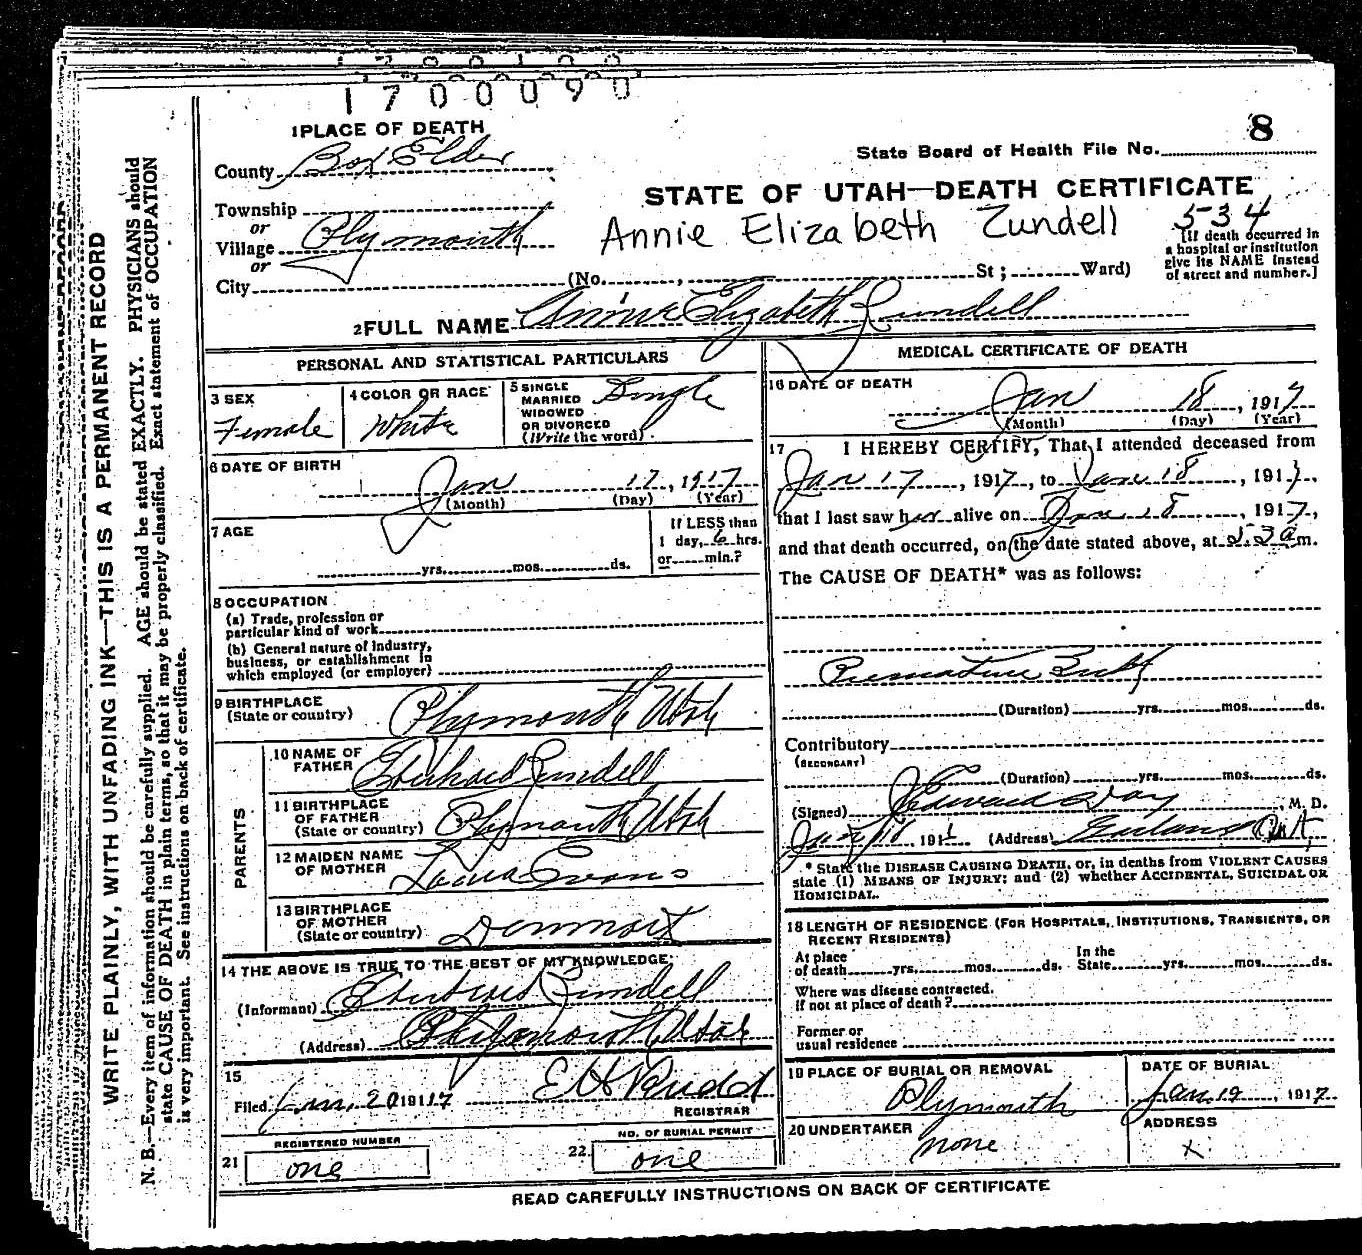 1700090
8
1 PLACE OF DEATH
State Board of Health File No.
County Box Elder
STATE OF UTAH—DEATH CERTIFICATE
Township
or
Village Plymouth
or
City
Annie Elizabeth Zundell
534
[If death occurred in
a hospital or institution
give its NAME instead
of street and number.]
(No. , St; Ward)
2 FULL NAME Annie Elizabeth Zundell
PERSONAL AND STATISTICAL PARTICULARS
3 SEX
Female
4 COLOR OR RACE
White
5 SINGLE
MARRIED
WIDOWED
OR DIVORCED
(Write the word)
Single
6 DATE OF BIRTH
Jan 17, 1917
(Month) (Day) (Year)
7 AGE
yrs. mos. ds.
If LESS than
1 day, 6 hrs.
or min.?
8 OCCUPATION
(a) Trade, profession or
particular kind of work
(b) General nature of Industry,
business, or establishment in
which employed (or employer)
9 BIRTHPLACE
(State or country)
Plymouth Utah
PARENTS
10 NAME OF
FATHER
Eberhard Zundell
11 BIRTHPLACE
OF FATHER
(State or country)
Plymouth Utah
12 MAIDEN NAME
OF MOTHER
Evans
13 BIRTHPLACE
OF MOTHER
(State or country)
14 THE ABOVE IS TRUE TO THE BEST OF MY KNOWLEDGE;
(Informant) Eberhard Zundell
(Address) Plymouth Utah
15
Filed Jan. 20 1917 E H Rudd
REGISTRAR
REGISTERED NUMBER
21 one
NO. OF BURIAL PERMIT
22. one
MEDICAL CERTIFICATE OF DEATH
16 DATE OF DEATH
Jan 18, 1917
(Month) (Day) (Year)
17 I HEREBY CERTIFY, That I attended deceased from
Jan 17, 1917, to Jan 18, 1917,
that I last saw her alive on Jan 18, 1917,
and that death occurred, on the date stated above, at 5.30 a m.
The CAUSE OF DEATH* was as follows:
Premature Birth
(Duration) yrs. mos. ds.
Contributory
(SECONDARY)
(Duration) yrs. mos. ds.
(Signed) J Edward Day, M. D.
Jan 18 191 (Address) Garland Ut
* State the DISEASE CAUSING DEATH, or, in deaths from VIOLENT CAUSES
state (1) MEANS OF INJURY; and (2) whether ACCIDENTAL, SUICIDAL OR
HOMICIDAL.
18 LENGTH OF RESIDENCE (FOR HOSPITALS, INSTITUTIONS, TRANSIENTS, OR
RECENT RESIDENTS)
At place
of death yrs. mos. ds.
In the
State yrs. mos. ds.
Where was disease contracted.
if not at place of death?
Former or
usual residence
19 PLACE OF BURIAL OR REMOVAL
Plymouth
DATE OF BURIAL
Jan. 19, 1917
20 UNDERTAKER
none
ADDRESS
x
READ CAREFULLY INSTRUCTIONS ON BACK OF CERTIFICATE
WRITE PLAINLY, WITH UNFADING INK—THIS IS A PERMANENT RECORD
N. B.—Every item of information should be carefully supplied. AGE should be stated EXACTLY. PHYSICIANS should
state CAUSE OF DEATH in plain terms, so that it may be properly classified. Exact statement of OCCUPATION
is very important. See instructions on back of certificate.